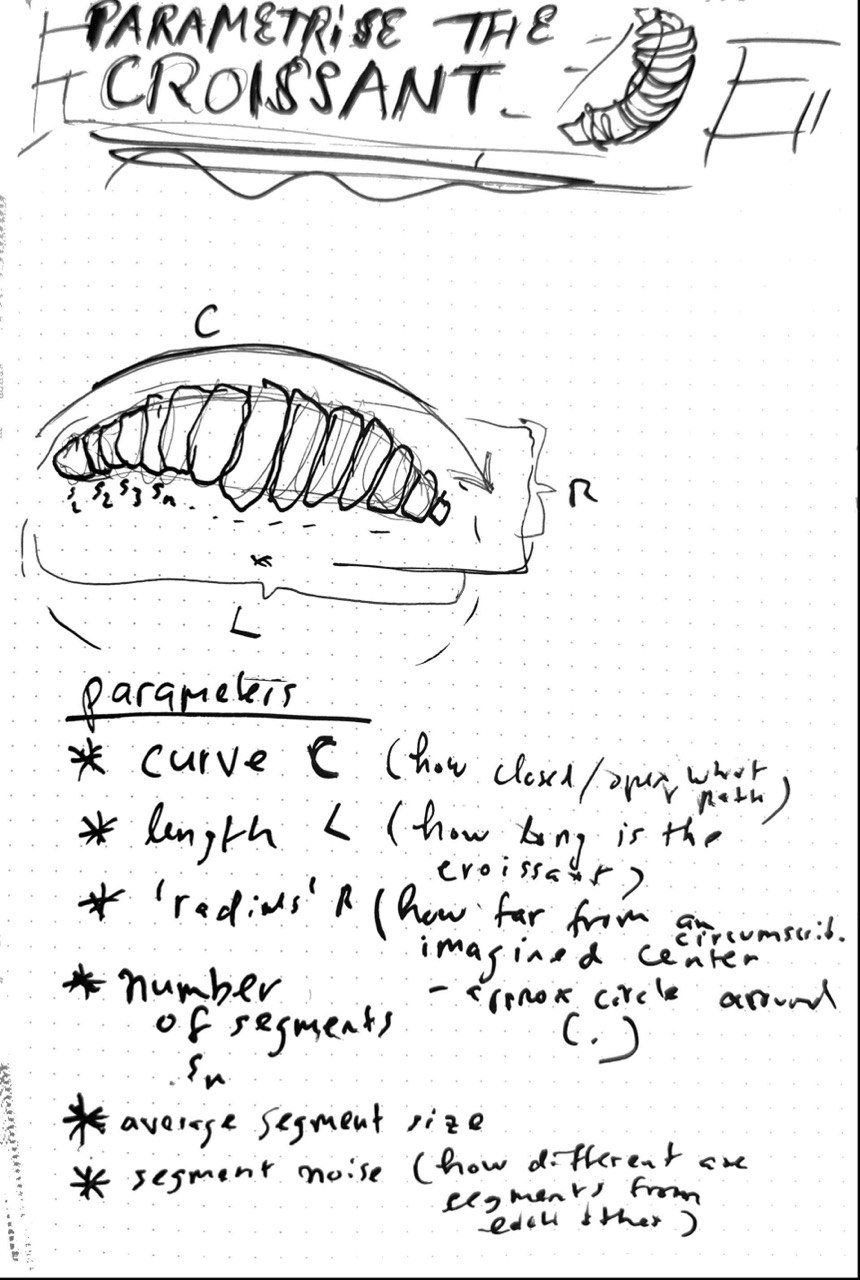 PARAMETRISE THE
CROISSANT
C
R
s1 s2 s3 sn . . . .
L
parameters
* curve C (how closed/open, what
path)
* length L (how long is the
croissant)
* 'radius' R (how far from an
circumscrib.
imagined center
- approx circle around
(.)
* number
of segments
sn
* average segment size
* segment noise (how different are
segments from
each other)